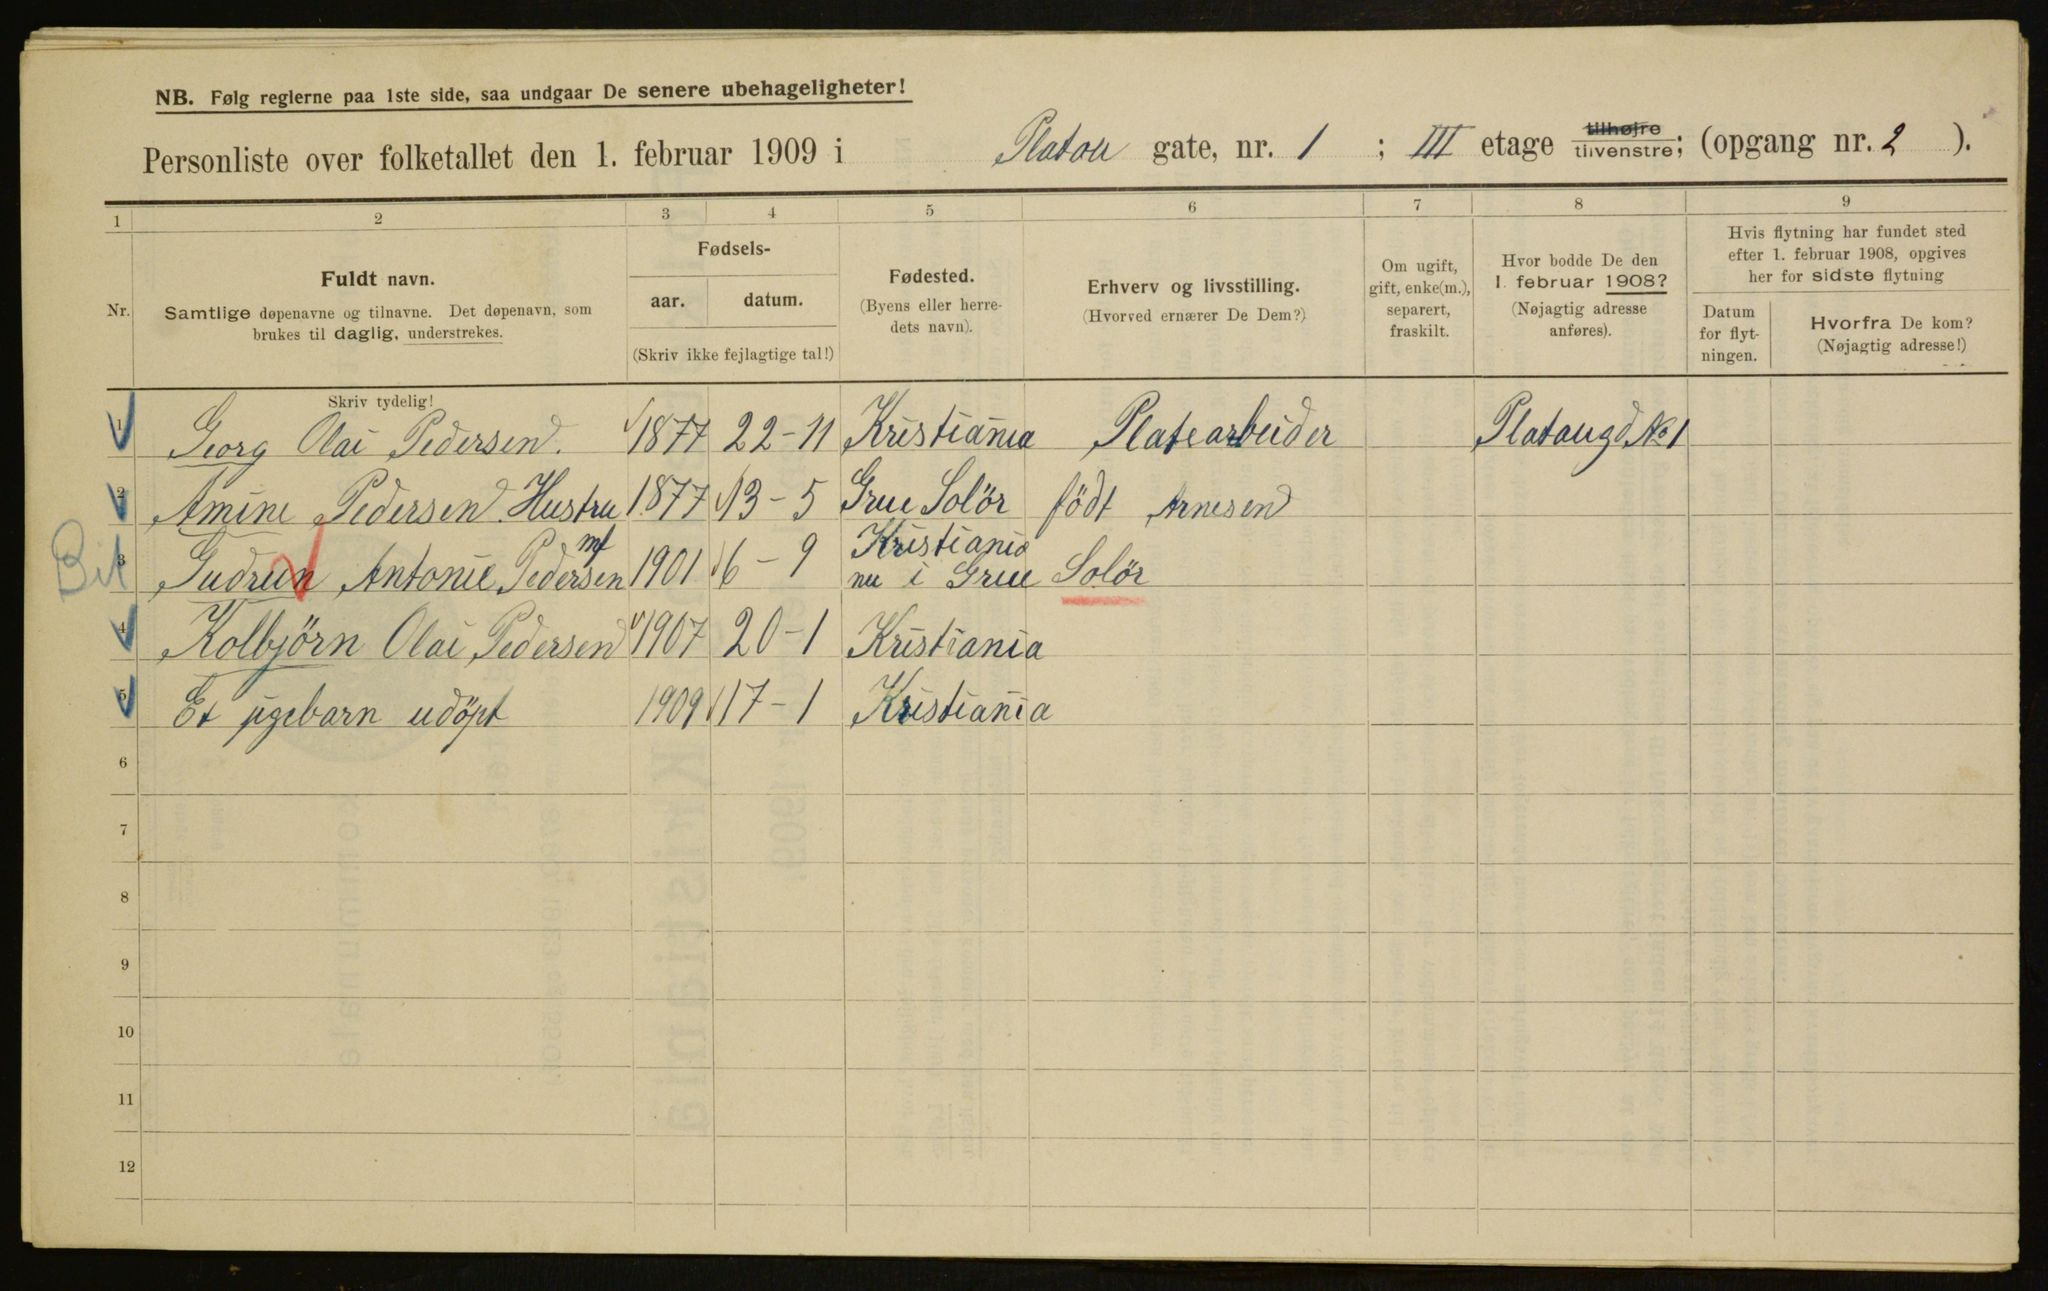 NB. Følg reglerne paa 1ste side, saa undgaar De senere ubehageligheter!
Personliste over folketallet den 1. februar 1909 i Platou gate, nr. 1 ; III etage tilhøjre tilvenstre; (opgang nr. 2 ).
1 2 3 4 5 6 7 8 9
Nr.
Fuldt navn.
Samtlige døpenavne og tilnavne. Det døpenavn, som
brukes til daglig, understrekes.
Fødsels-
aar. datum.
(Skriv ikke fejlagtige tal!)
Fødested.
(Byens eller herre-
dets navn).
Erhverv og livsstilling.
(Hvorved ernærer De Dem?)
Om ugift,
gift, enke(m.),
separert,
fraskilt.
Hvor bodde De den
1. februar 1908?
(Nøjagtig adresse
anføres).
Hvis flytning har fundet sted
efter 1. februar 1908, opgives
her for sidste flytning
Datum
for flyt-
ningen.
Hvorfra De kom?
(Nøjagtig adresse!)
Skriv tydelig!
1 Georg Olai Pedersen. 1877 22-11 Kristiania Platearbeider Plataugd No 1
2 Amine Pedersen Hustru 1877 13-5 Grue Solör födt Arnesen
Bit 3 Gudrun Antonie Pedersen mf 1901 6-9 Kristiania
nu i Grue Solör
4 Kolbjörn Olai Pedersen 1907 20-1 Kristiania
5 Et pigebarn udöpt 1909 17-1 Kristiania
6
7
8
9
10
11
12